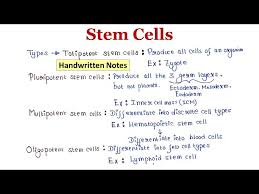 Stem Cells
Types → Totipotent stem cells : Produce all cells of an organism
Handwritten Notes
Ex : Zygote
Pluripotent stem cells : Produce all the 3 germ layers,
but not placenta.
Ectoderm, Mesoderm,
Endoderm
Ex : Inner cell mass (ICM)
Multipotent stem cells : Differentiate into discrete cell types
Ex : Hematopoietic stem cell
↓
Differentiate into blood cells
Oligopotent stem cells : Differentiate into few cell types
Ex : Lymphoid stem cell